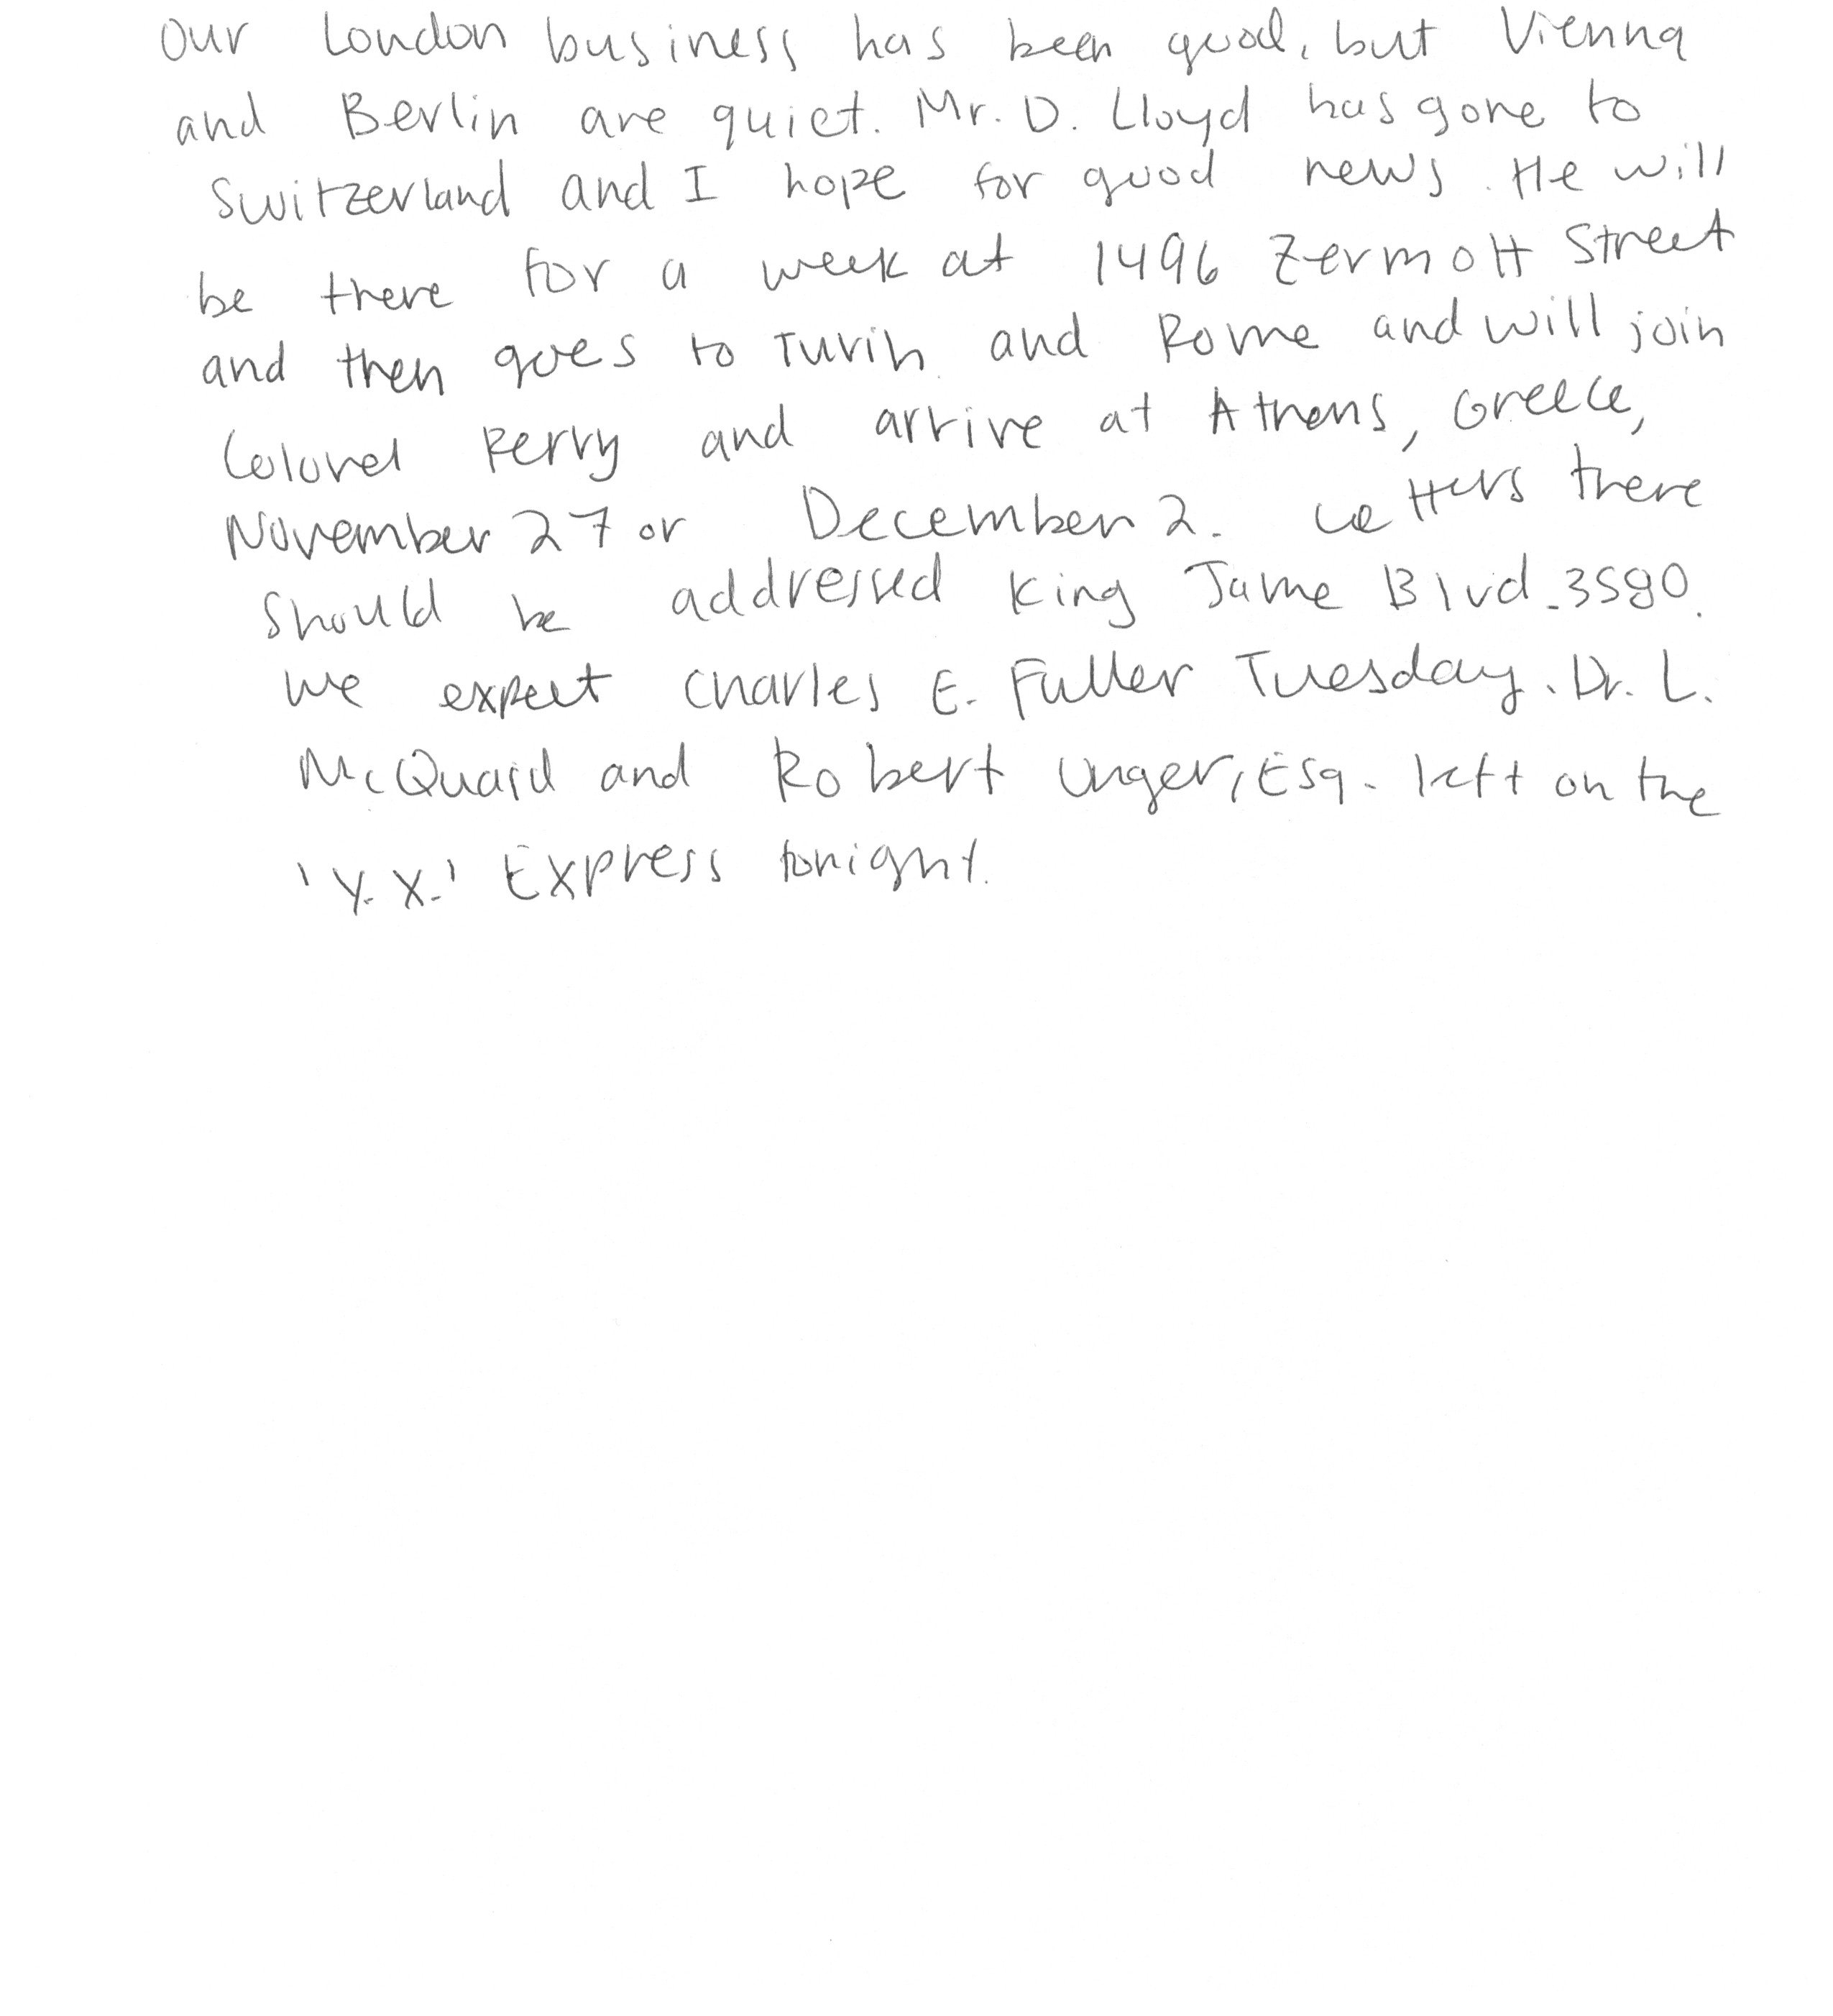 Our London business has been good, but Vienna
and Berlin are quiet. Mr. D. Lloyd has gone to
Switzerland and I hope for good news. He will
be there for a week at 1496 Zermott Street
and then goes to Turin and Rome and will join
Colonel Perry and arrive at Athens, Greece,
November 27 or December 2. Letters there
should be addressed King Jame Blvd. 3580.
We expect Charles E. Fuller Tuesday. Dr. L.
McQuaid and Robert Unger, Esq. left on the
'Y.X.' Express tonight.